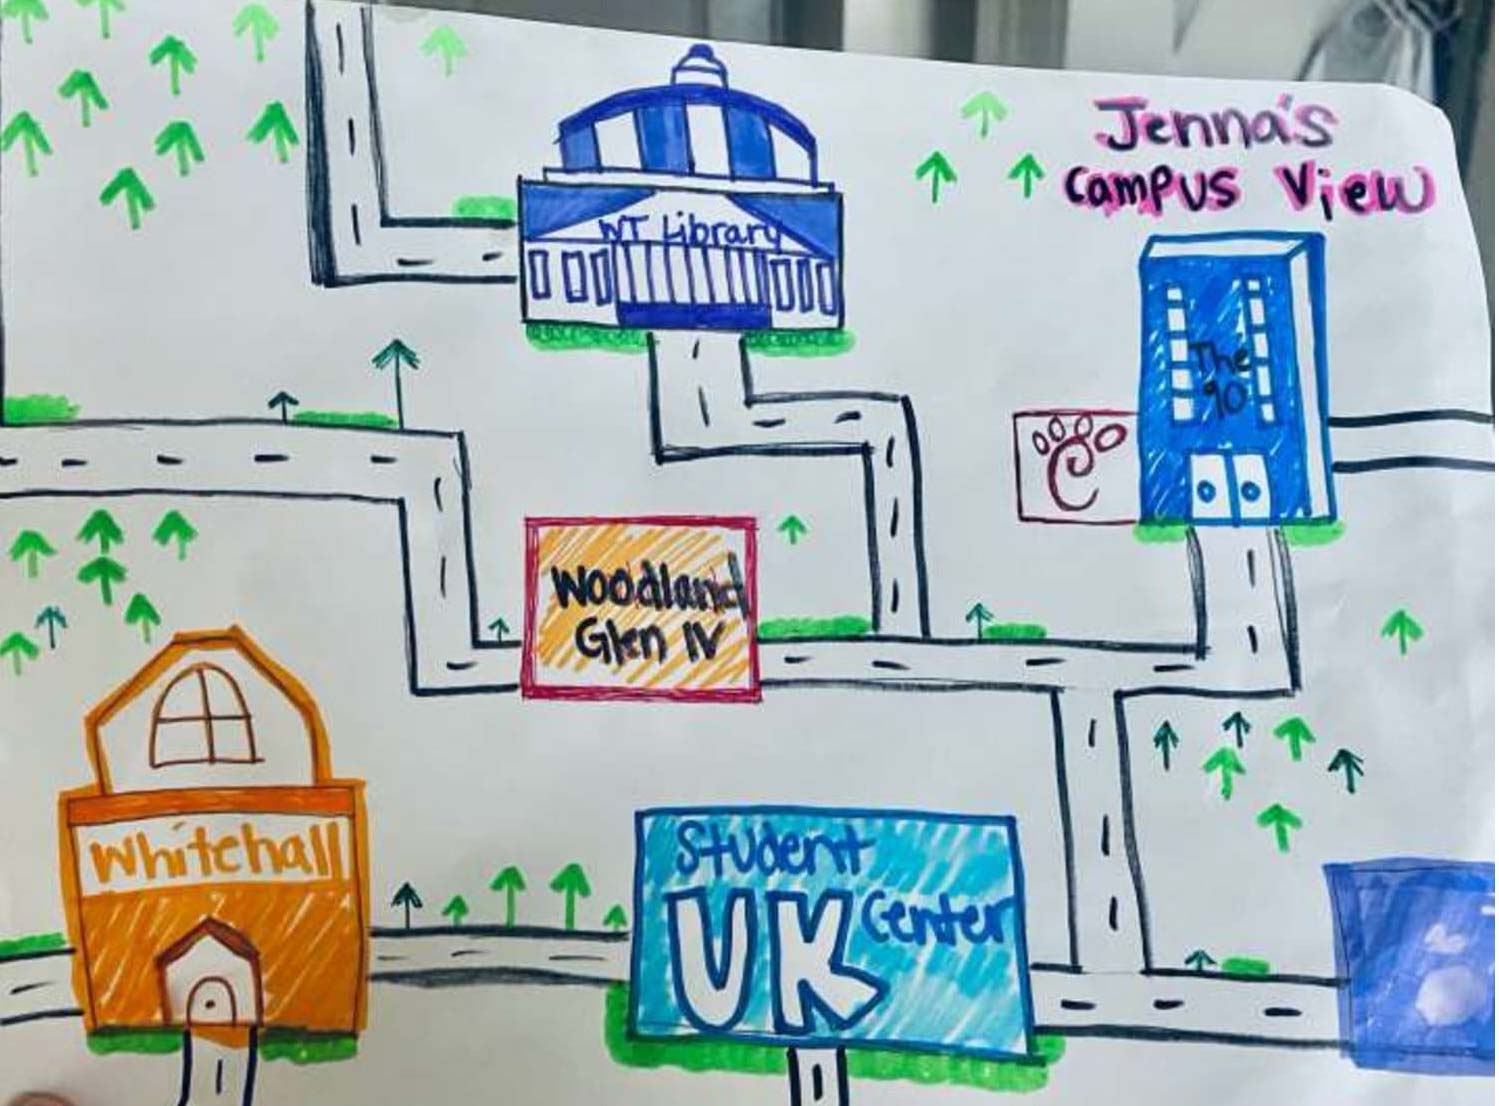 Jenna's
Campus View
WT Library
The
90
Woodland
Glen IV
Whitehall
Student
UK Center